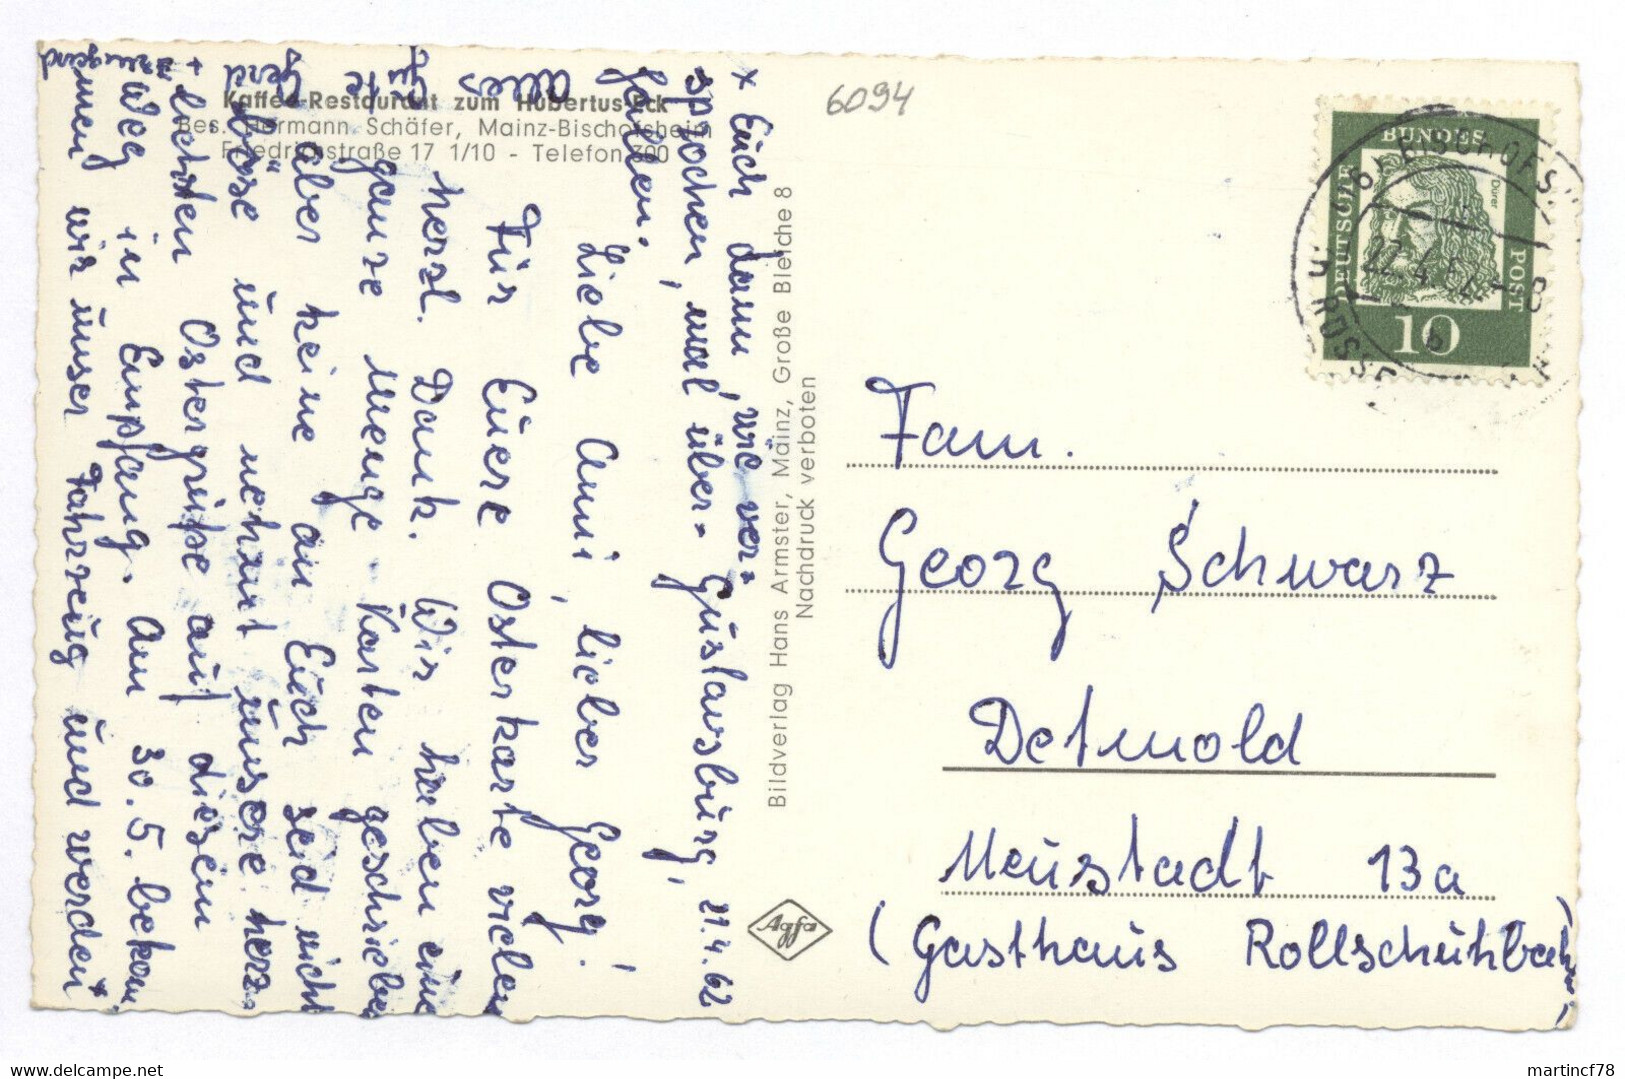 Kaffee-Restaurant zum Hubertus-Eck
Bes. Hermann Schäfer, Mainz-Bischofsheim
Friedrichstraße 17 1/10 - Telefon 300
6094
Gustavsburg, 21.4.62
Liebe Anni, lieber Georg!
Für Euere Osterkarte vielen
herzl. Dank. Wir haben eine
ganze Menge Karten geschrieben
aber keine an Euch seid nicht
„böse" und nehmt unsere herz-
lichsten Ostergrüße auf diesem
Weg in Empfang. Am 30.5. bekom-
men wir unser Fahrzeug und werden *
* Euch dann, wie ver-
sprochen, mal über-
fallen.
alles
Gute
Gerd
+
Bildverlag Hans Armster, Mainz, Große Bleiche 8
Nachdruck verboten
Agfa
DEUTSCHE
BUNDES
POST
Dürer
10
BISCHOFSH
GROSS
22.4.62-8
b
Fam.
Georg Schwarz
Detmold
Neustadt 13a
(Gasthaus Rollschuhbahn)
martincf78